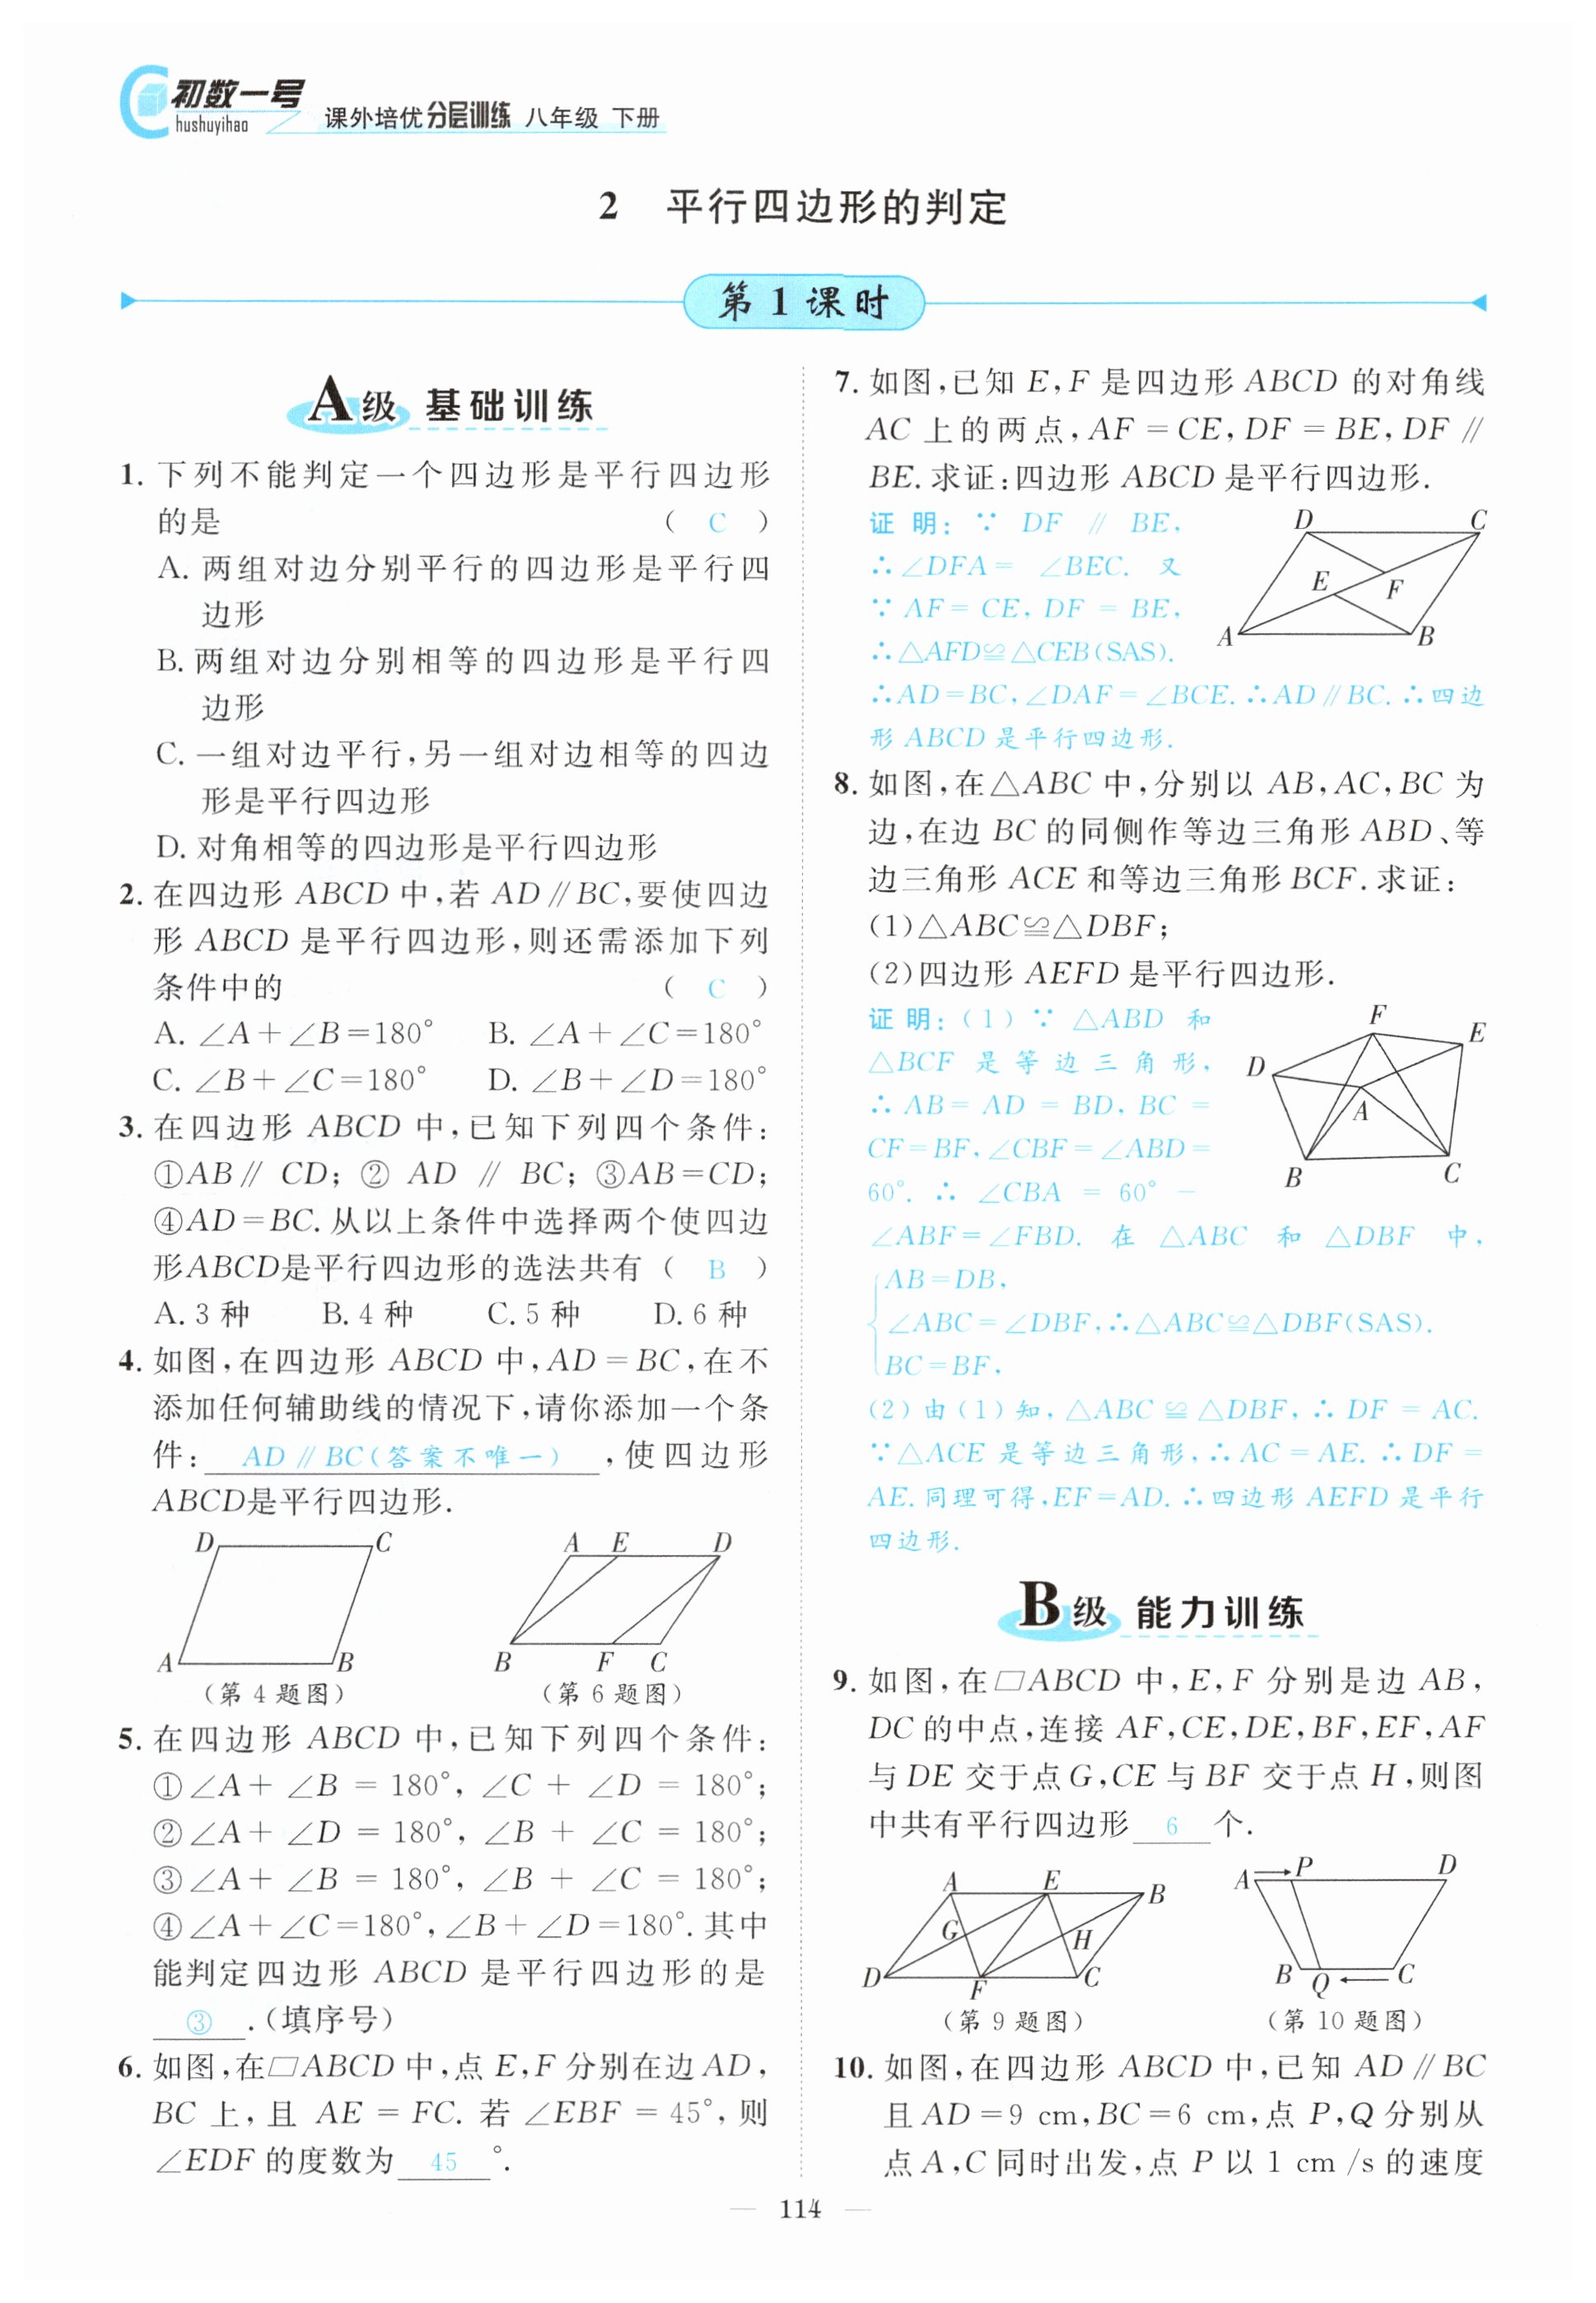 初数一号
hushuyihao
课外培优分层训练 八年级 下册
2 平行四边形的判定
第1课时
A级 基础训练
1. 下列不能判定一个四边形是平行四边形
的是 ( C )
A. 两组对边分别平行的四边形是平行四
边形
B. 两组对边分别相等的四边形是平行四
边形
C. 一组对边平行,另一组对边相等的四边
形是平行四边形
D. 对角相等的四边形是平行四边形
2. 在四边形 ABCD 中,若 AD∥BC,要使四边
形 ABCD 是平行四边形,则还需添加下列
条件中的 ( C )
A. ∠A+∠B=180° B. ∠A+∠C=180°
C. ∠B+∠C=180° D. ∠B+∠D=180°
3. 在四边形 ABCD 中,已知下列四个条件:
①AB∥CD; ②AD∥BC; ③AB=CD;
④AD=BC. 从以上条件中选择两个使四边
形ABCD是平行四边形的选法共有 ( B )
A. 3 种 B. 4 种 C. 5 种 D. 6 种
4. 如图,在四边形 ABCD 中,AD=BC,在不
添加任何辅助线的情况下,请你添加一个条
件: AD∥BC(答案不唯一) ,使四边形
ABCD是平行四边形.
D C
A B
(第 4 题图)
A E D
B F C
(第 6 题图)
5. 在四边形 ABCD 中,已知下列四个条件:
①∠A+∠B=180°,∠C+∠D=180°;
②∠A+∠D=180°,∠B+∠C=180°;
③∠A+∠B=180°,∠B+∠C=180°;
④∠A+∠C=180°,∠B+∠D=180°. 其中
能判定四边形 ABCD 是平行四边形的是
③ .(填序号)
6. 如图,在▱ABCD 中,点 E,F 分别在边 AD,
BC 上,且 AE=FC. 若∠EBF=45°,则
∠EDF 的度数为 45 °.
7. 如图,已知 E,F 是四边形 ABCD 的对角线
AC 上的两点,AF=CE,DF=BE,DF∥
BE. 求证:四边形 ABCD 是平行四边形.
证明:∵DF∥BE,
∴∠DFA=∠BEC. 又
∵AF=CE,DF=BE,
∴△AFD≌△CEB(SAS).
∴AD=BC,∠DAF=∠BCE. ∴AD∥BC. ∴四边
形 ABCD 是平行四边形.
D C
E F
A B
8. 如图,在△ABC 中,分别以 AB,AC,BC 为
边,在边 BC 的同侧作等边三角形 ABD、等
边三角形 ACE 和等边三角形 BCF. 求证:
(1)△ABC≌△DBF;
(2)四边形 AEFD 是平行四边形.
证明:(1)∵△ABD 和
△BCF 是等边三角形,
∴AB=AD=BD,BC=
CF=BF,∠CBF=∠ABD=
60°. ∴∠CBA=60°-
∠ABF=∠FBD. 在△ABC 和△DBF 中,
AB=DB,
∠ABC=∠DBF,∴△ABC≌△DBF(SAS).
BC=BF,
(2)由(1)知,△ABC≌△DBF,∴DF=AC.
∵△ACE 是等边三角形,∴AC=AE. ∴DF=
AE. 同理可得,EF=AD. ∴四边形 AEFD 是平行
四边形.
F
E
D
A
B C
B级 能力训练
9. 如图,在▱ABCD 中,E,F 分别是边 AB,
DC 的中点,连接 AF,CE,DE,BF,EF,AF
与 DE 交于点G,CE 与 BF 交于点 H,则图
中共有平行四边形 6 个.
A E B
G H
D F C
(第 9 题图)
A P D
B Q C
(第 10 题图)
10. 如图,在四边形 ABCD 中,已知 AD∥BC
且 AD=9 cm,BC=6 cm,点 P,Q 分别从
点 A,C 同时出发,点 P 以 1 cm/s 的速度
— 114 —